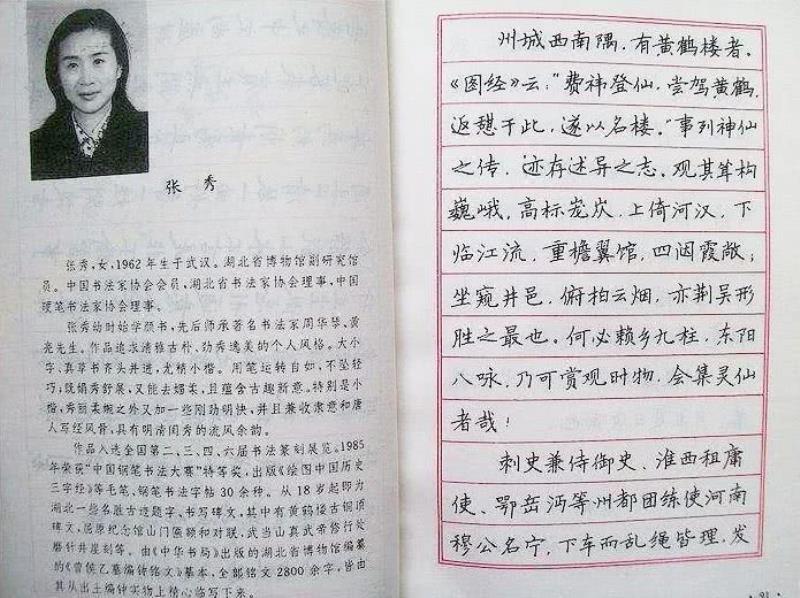 张 秀
张秀,女,1962年生于武汉。湖北省博物馆副研究馆
员。中国书法家协会会员,湖北省书法家协会理事,中国
硬笔书法家协会理事。
张秀幼时始学颜书,先后师承著名书法家周华琴、黄
亮先生。作品追求清雅古朴、劲秀逸美的个人风格。大小
字,真草书齐头并进,尤精小楷。用笔运转自如,不坠轻
巧;既娟秀舒展,又能去媚柔,且蕴含古趣新意。特别是小
楷,秀丽柔婉之外又加一些刚劲明快,并且兼收隶意和唐
人写经风骨,具有明清闺秀的流风余韵。
作品入选全国第二、三、四、六届书法篆刻展览。1985
年荣获“中国钢笔书法大赛”特等奖,出版《绘图中国历史
三字经》等毛笔、钢笔书法字帖30余种。从18岁起即为
湖北一些名胜古迹题字、书写碑文,其中有黄鹤楼古铜顶
碑文,屈原纪念馆山门匾额和对联,武当山真武帝修行处
磨针井崖刻等。由《中华书局》出版的湖北省博物馆编纂
的《曾侯乙墓编钟铭文》摹本,全部铭文2800余字,皆由
其从出土编钟实物上精心临写下来。
州城西南隅,有黄鹤楼者。
《图经》云:“费祎登仙,尝驾黄鹤,
返憩于此,遂以名楼。”事列神仙
之传,迹存述异之志。观其耸构
巍峨,高标宠炊,上倚河汉,下
临江流,重檐翼馆,四闼霞敞;
坐窥井邑,俯拍云烟,亦荆吴形
胜之最也。何必赖乡九柱,东阳
八咏,乃可赏观时物,会集灵仙
者哉!
刺史兼侍御史、淮西租庸
使、鄂岳沔等州都团练使河南
穆公名宁,下车而乱绳皆理,发